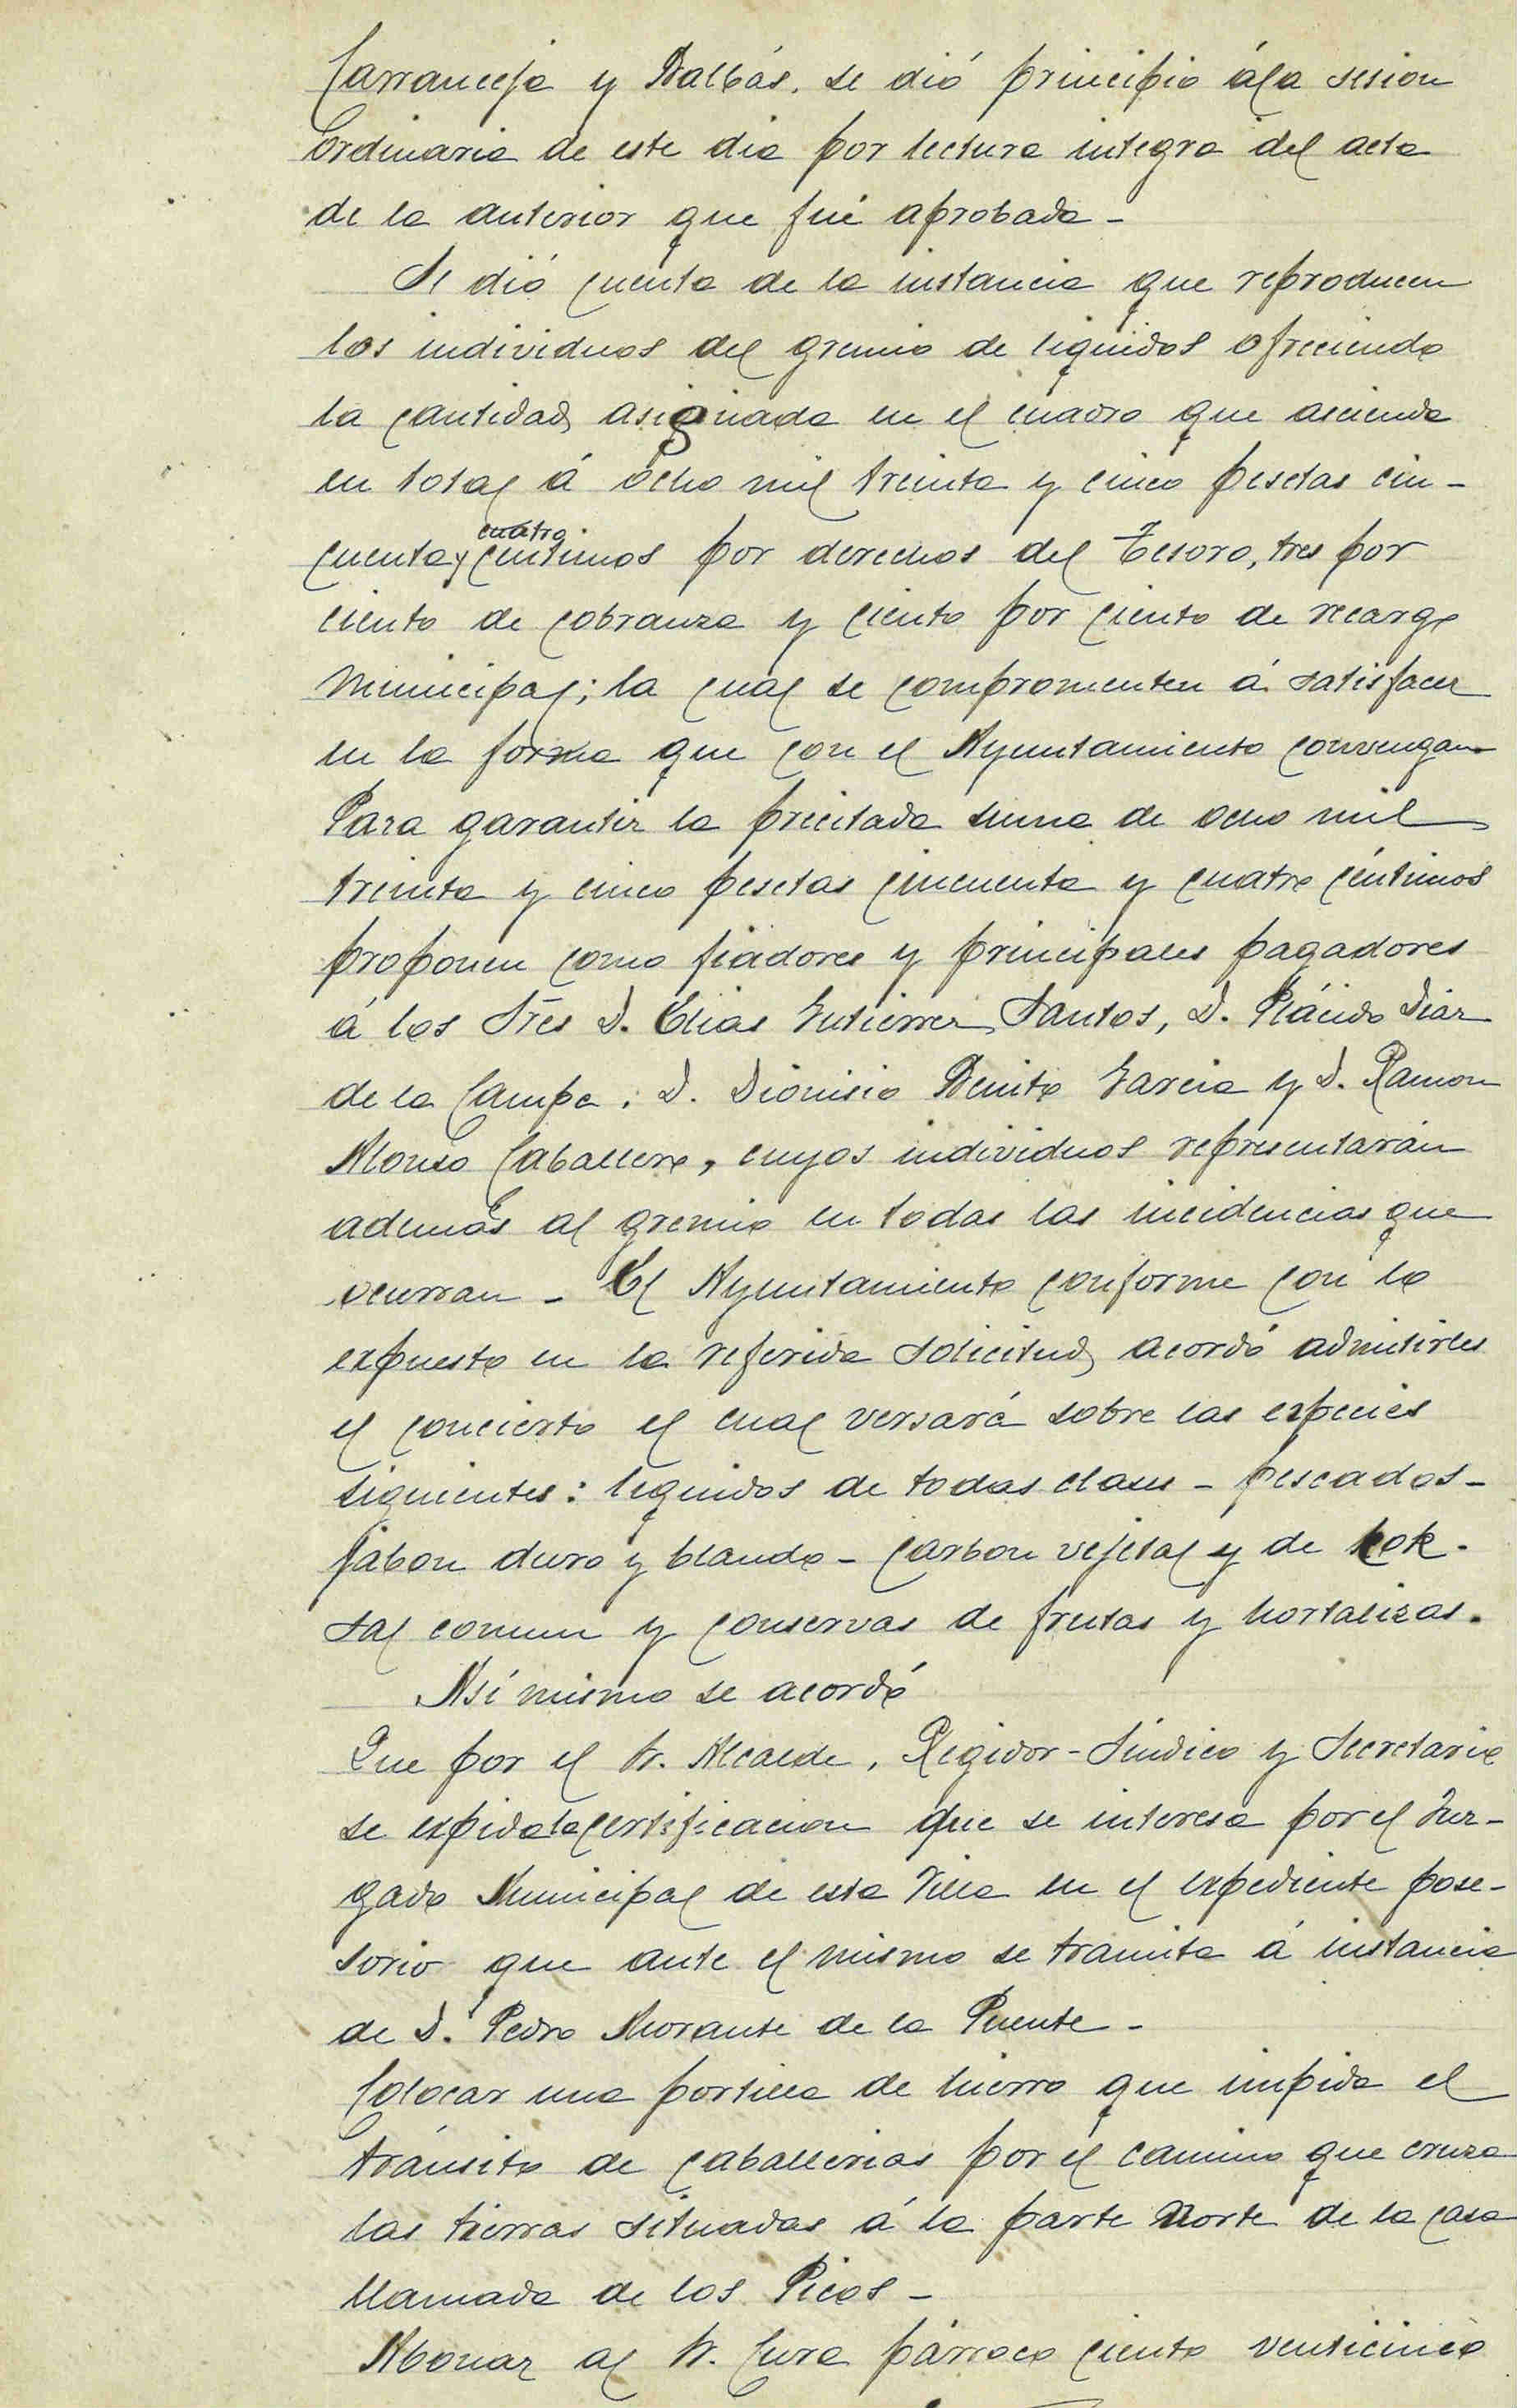 Carranceja y Balbás. se dió principio á la sesion
ordinaria de este dia por lectura integra del acta
de la anterior que fué aprobada -
Se dió cuenta de la instancia que reproducen
los individuos del gremio de liquidos ofreciendo
la cantidad asignada en el cuadro que asciende
en total á ocho mil treinta y cinco pesetas cin-
cuenta y cuatro centimos por derechos del Tesoro, tres por
ciento de cobranza y ciento por ciento de recargo
Municipal; la cual se compromenten á satisfacer
en la forma que con el Ayuntamiento convengan
Para garantir la precitada suma de ocho mil
treinta y cinco pesetas cincuenta y cuatro céntimos
proponen como fiadores y principales pagadores
á los Sres D. Elias Gutierrez Santos, D. Plácido Diaz
de la Campa. D. Dionisio Benito Garcia y D. Ramon
Alonso Caballero, cuyos individuos representarán
además al gremio en todas las incidencias que
ocurran - El Ayuntamiento conforme con lo
expuesto en la referida solicitud, acordó admitirles
el concierto el cual versará sobre las especies
siguientes: liquidos de todas clases - pescados -
jabon duro y blando - carbon vejetal y de kok.
sal comun y conservas de frutas y hortalizas.
Así mismo se acordó
Que por el Sr. Alcalde, Regidor-Síndico y Secretario
se expida la certificacion que se interesa por el Juz-
gado Municipal de esta Villa en el expediente pose-
sorio que ante el mismo se tramita á instancia
de D. Pedro Morante de la Puente -
Colocar una portilla de hierro que impida el
tránsito de caballerias por el camino que cruza
las tierras situadas á la parte Norte de la casa
llamada de los Picos -
Abonar al Sr. Cura párroco ciento venticinco